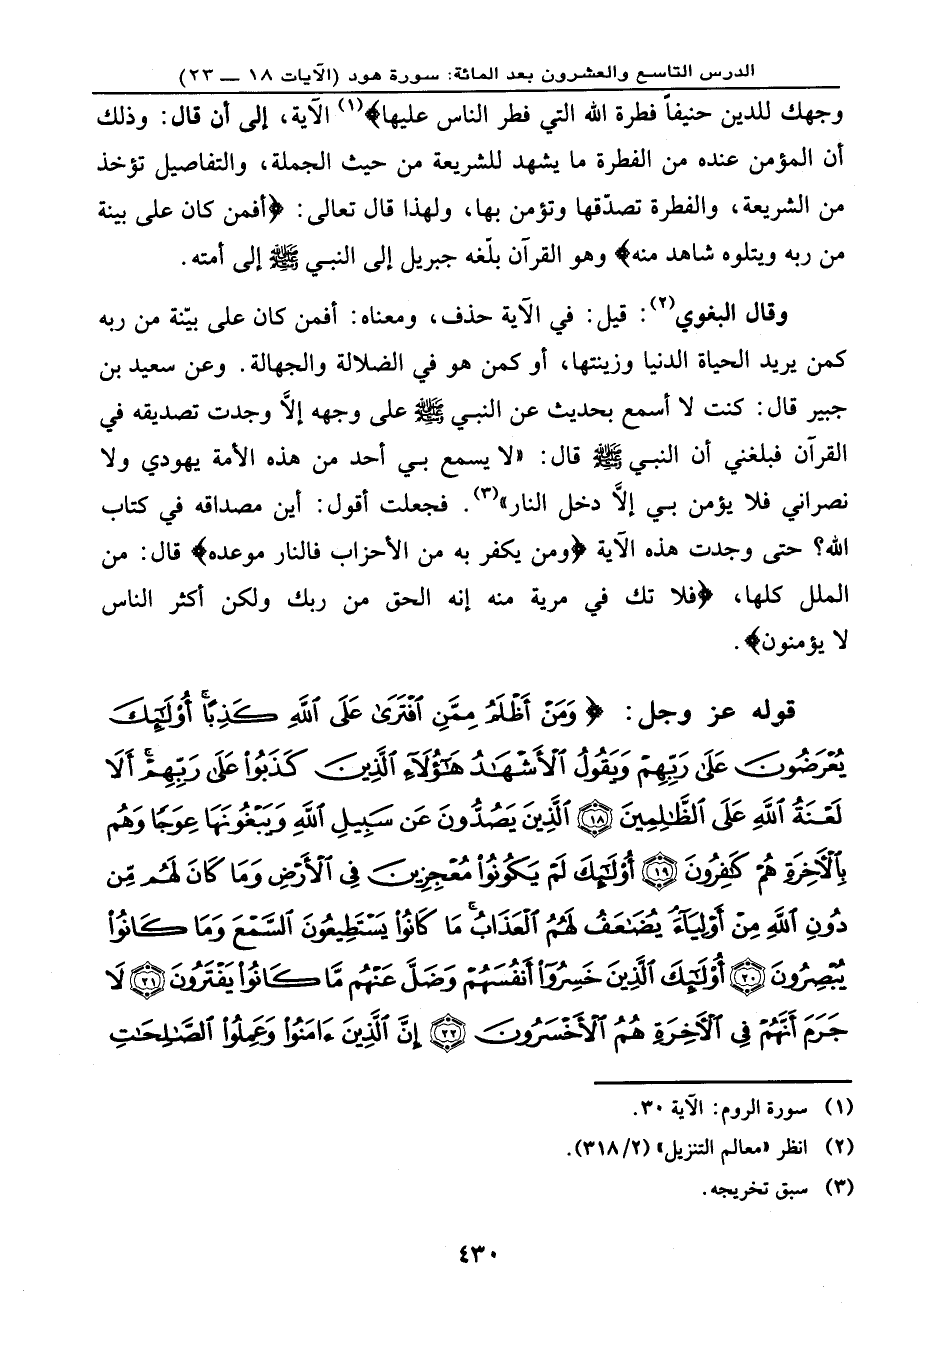 الدرس التاسع والعشرون بعد المائة: سورة هود (الآيات ١٨ ــ ٢٣)
وجهك للدين حنيفاً فطرة الله التي فطر الناس عليها﴾(١) الآية، إلى أن قال: وذلك
أن المؤمن عنده من الفطرة ما يشهد للشريعة من حيث الجملة، والتفاصيل تؤخذ
من الشريعة، والفطرة تصدّقها وتؤمن بها، ولهذا قال تعالى: ﴿أفمن كان على بينة
من ربه ويتلوه شاهد منه﴾ وهو القرآن بلّغه جبريل إلى النبي ﷺ إلى أمته.
وقال البغوي(٢): قيل: في الآية حذف، ومعناه: أفمن كان على بيّنة من ربه
كمن يريد الحياة الدنيا وزينتها، أو كمن هو في الضلالة والجهالة. وعن سعيد بن
جبير قال: كنت لا أسمع بحديث عن النبي ﷺ على وجهه إلاَّ وجدت تصديقه في
القرآن فبلغني أن النبي ﷺ قال: «لا يسمع بي أحد من هذه الأمة يهودي ولا
نصراني فلا يؤمن بي إلاَّ دخل النار»(٣). فجعلت أقول: أين مصداقه في كتاب
الله؟ حتى وجدت هذه الآية ﴿ومن يكفر به من الأحزاب فالنار موعده﴾ قال: من
الملل كلها، ﴿فلا تك في مرية منه إنه الحق من ربك ولكن أكثر الناس
لا يؤمنون﴾.
قوله عز وجل: ﴿وَمَنْ أَظْلَمُ مِمَّنِ ٱفْتَرَىٰ عَلَى ٱللَّهِ كَذِبًا ۚ أُو۟لَـٰٓئِكَ
يُعْرَضُونَ عَلَىٰ رَبِّهِمْ وَيَقُولُ ٱلْأَشْهَـٰدُ هَـٰٓؤُلَآءِ ٱلَّذِينَ كَذَبُوا۟ عَلَىٰ رَبِّهِمْ ۚ أَلَا
لَعْنَةُ ٱللَّهِ عَلَى ٱلظَّـٰلِمِينَ ۝١٨ ٱلَّذِينَ يَصُدُّونَ عَن سَبِيلِ ٱللَّهِ وَيَبْغُونَهَا عِوَجًا وَهُم
بِٱلْـَٔاخِرَةِ هُمْ كَـٰفِرُونَ ۝١٩ أُو۟لَـٰٓئِكَ لَمْ يَكُونُوا۟ مُعْجِزِينَ فِى ٱلْأَرْضِ وَمَا كَانَ لَهُم مِّن
دُونِ ٱللَّهِ مِنْ أَوْلِيَآءَ ۘ يُضَـٰعَفُ لَهُمُ ٱلْعَذَابُ ۚ مَا كَانُوا۟ يَسْتَطِيعُونَ ٱلسَّمْعَ وَمَا كَانُوا۟
يُبْصِرُونَ ۝٢٠ أُو۟لَـٰٓئِكَ ٱلَّذِينَ خَسِرُوٓا۟ أَنفُسَهُمْ وَضَلَّ عَنْهُم مَّا كَانُوا۟ يَفْتَرُونَ ۝٢١ لَا
جَرَمَ أَنَّهُمْ فِى ٱلْـَٔاخِرَةِ هُمُ ٱلْأَخْسَرُونَ ۝٢٢ إِنَّ ٱلَّذِينَ ءَامَنُوا۟ وَعَمِلُوا۟ ٱلصَّـٰلِحَـٰتِ
(١) سورة الروم: الآية ٣٠.
(٢) انظر «معالم التنزيل» (٣١٨/٢).
(٣) سبق تخريجه.
٤٣٠